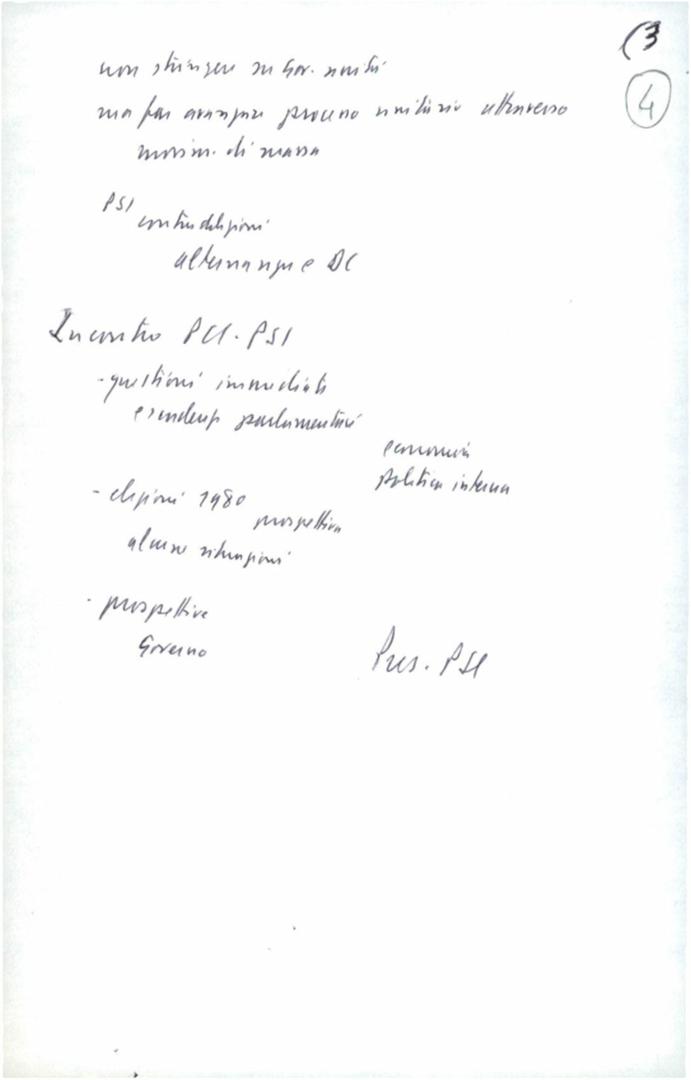 (3
4
non stringere su Gov. unità
ma far avanzare processo unitario attraverso
movim. di massa
PSI contraddizioni
alternanza e DC
Incontro PCI-PSI
- questioni immediate
parlamentari
economia
politica interna
- elezioni 1980
prospettiva
alcune situazioni
- prospettive
Governo
Pres. PSI